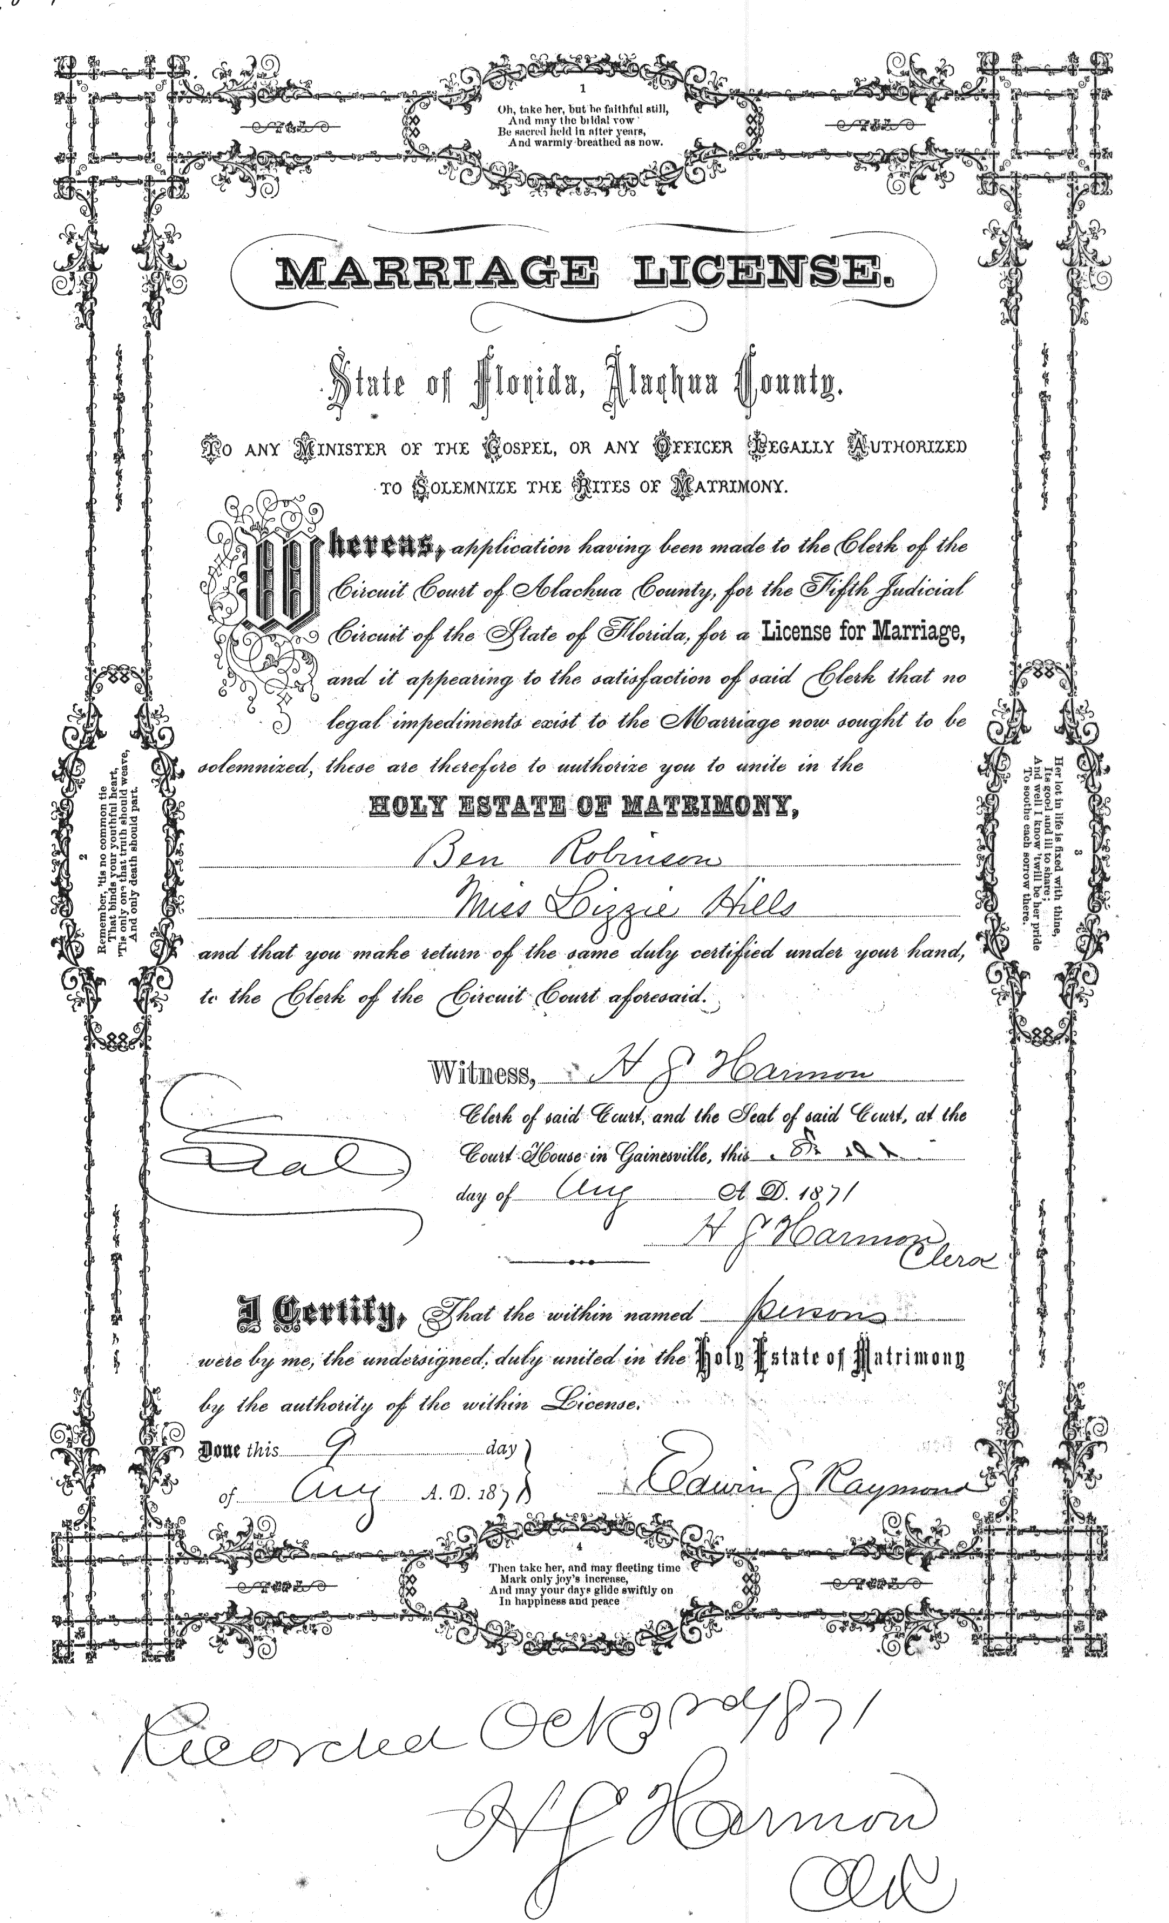 1
Oh, take her, but be faithful still,
And may the bridal vow
Be sacred held in after years,
And warmly breathed as now.
MARRIAGE LICENSE.
State of Florida, Alachua County.
TO ANY MINISTER OF THE GOSPEL, OR ANY OFFICER LEGALLY AUTHORIZED
TO SOLEMNIZE THE RITES OF MATRIMONY.
Whereas, application having been made to the Clerk of the
Circuit Court of Alachua County, for the Fifth Judicial
Circuit of the State of Florida, for a License for Marriage,
and it appearing to the satisfaction of said Clerk that no
legal impediments exist to the Marriage now sought to be
solemnized, these are therefore to authorize you to unite in the
HOLY ESTATE OF MATRIMONY,
Ben Robinson
Miss Lizzie Hills
and that you make return of the same duly certified under your hand,
to the Clerk of the Circuit Court aforesaid.
2
Remember, 'tis no common tie
That binds your youthful heart,
'Tis only one that truth should weave,
And only death should part.
3
Her lot in life is fixed with thine,
Its good and ill to share;
And well I know 'twill be her pride
To soothe each sorrow there.
Witness, H J Harmon
Clerk of said Court, and the Seal of said Court, at the
Court House in Gainesville, this 8th
day of Aug A. D. 1871
Seal
H J Harmon
Clerk
I Certify, That the within named persons
were by me, the undersigned, duly united in the Holy Estate of Matrimony
by the authority of the within License.
Done this 9 day
of Aug A. D. 1871
Edwin J Raymond
4
Then take her, and may fleeting time
Mark only joy's increase,
And may your days glide swiftly on
In happiness and peace
Recorded Oct 3rd 1871
H J Harmon
Clk